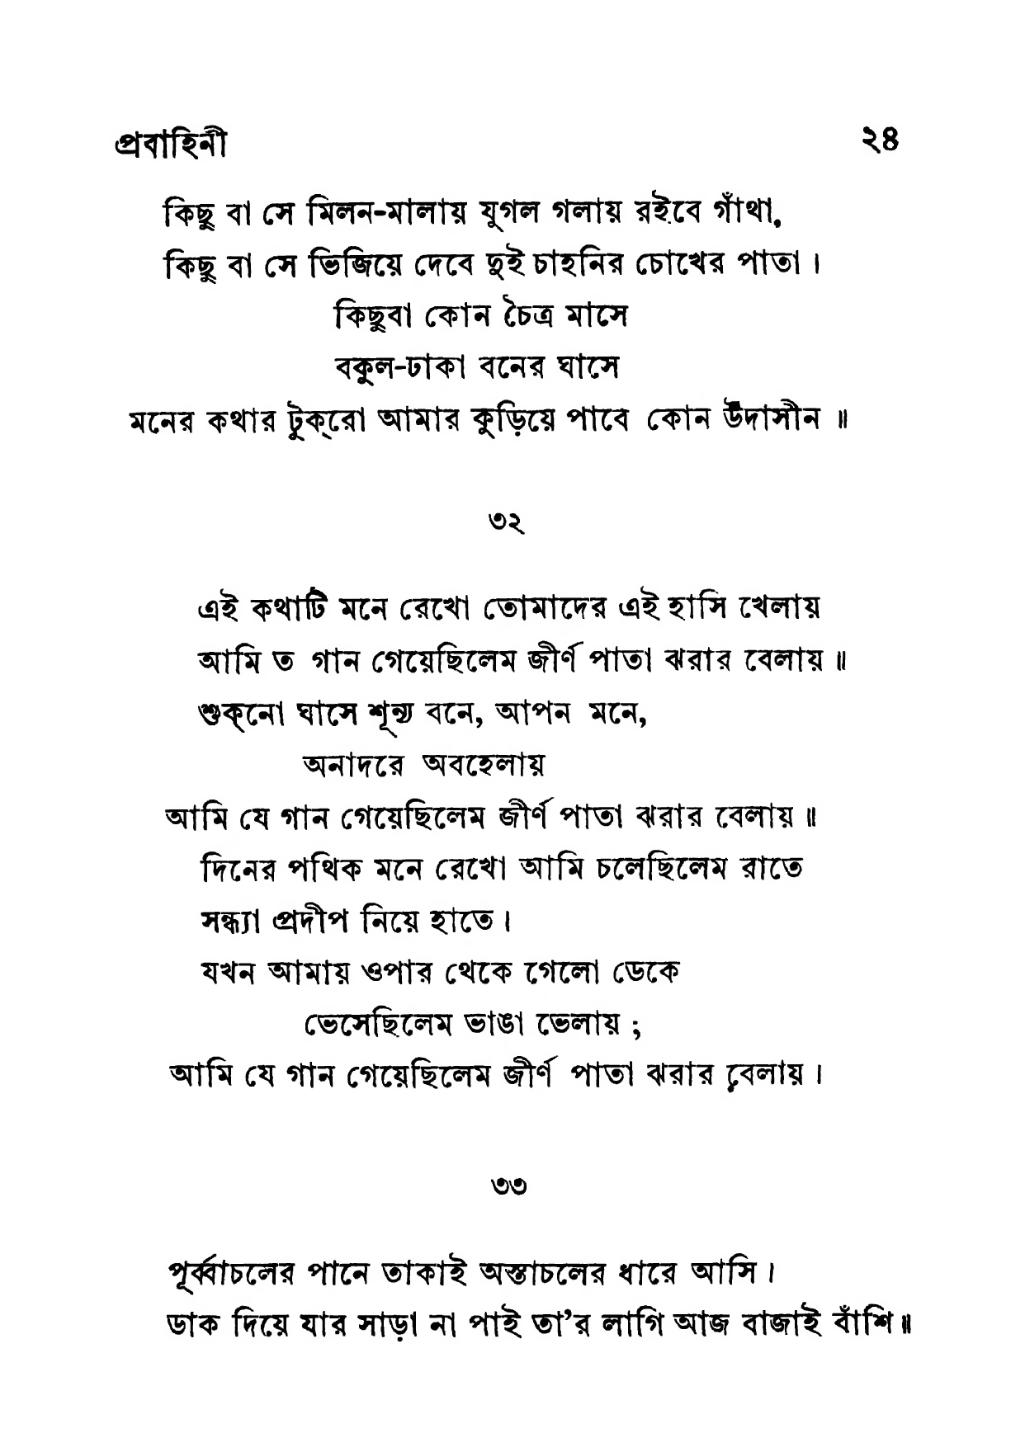 প্রবাহিনী ২৪
কিছু বা সে মিলন-মালায় যুগল গলায় রইবে গাঁথা,
কিছু বা সে ভিজিয়ে দেবে দুই চাহনির চোখের পাতা।
কিছুবা কোন চৈত্র মাসে
বকুল-ঢাকা বনের ঘাসে
মনের কথার টুক্‌রো আমার কুড়িয়ে পাবে কোন উদাসীন॥
৩২
এই কথাটি মনে রেখো তোমাদের এই হাসি খেলায়
আমি ত গান গেয়েছিলেম জীর্ণ পাতা ঝরার বেলায়॥
শুক্‌নো ঘাসে শূন্য বনে, আপন মনে,
অনাদরে অবহেলায়
আমি যে গান গেয়েছিলেম জীর্ণ পাতা ঝরার বেলায়॥
দিনের পথিক মনে রেখো আমি চলেছিলেম রাতে
সন্ধ্যা প্রদীপ নিয়ে হাতে।
যখন আমায় ওপার থেকে গেলো ডেকে
ভেসেছিলেম ভাঙা ভেলায়;
আমি যে গান গেয়েছিলেম জীর্ণ পাতা ঝরার বেলায়।
৩৩
পূর্ব্বাচলের পানে তাকাই অস্তাচলের ধারে আসি।
ডাক দিয়ে যার সাড়া না পাই তা’র লাগি আজ বাজাই বাঁশি॥